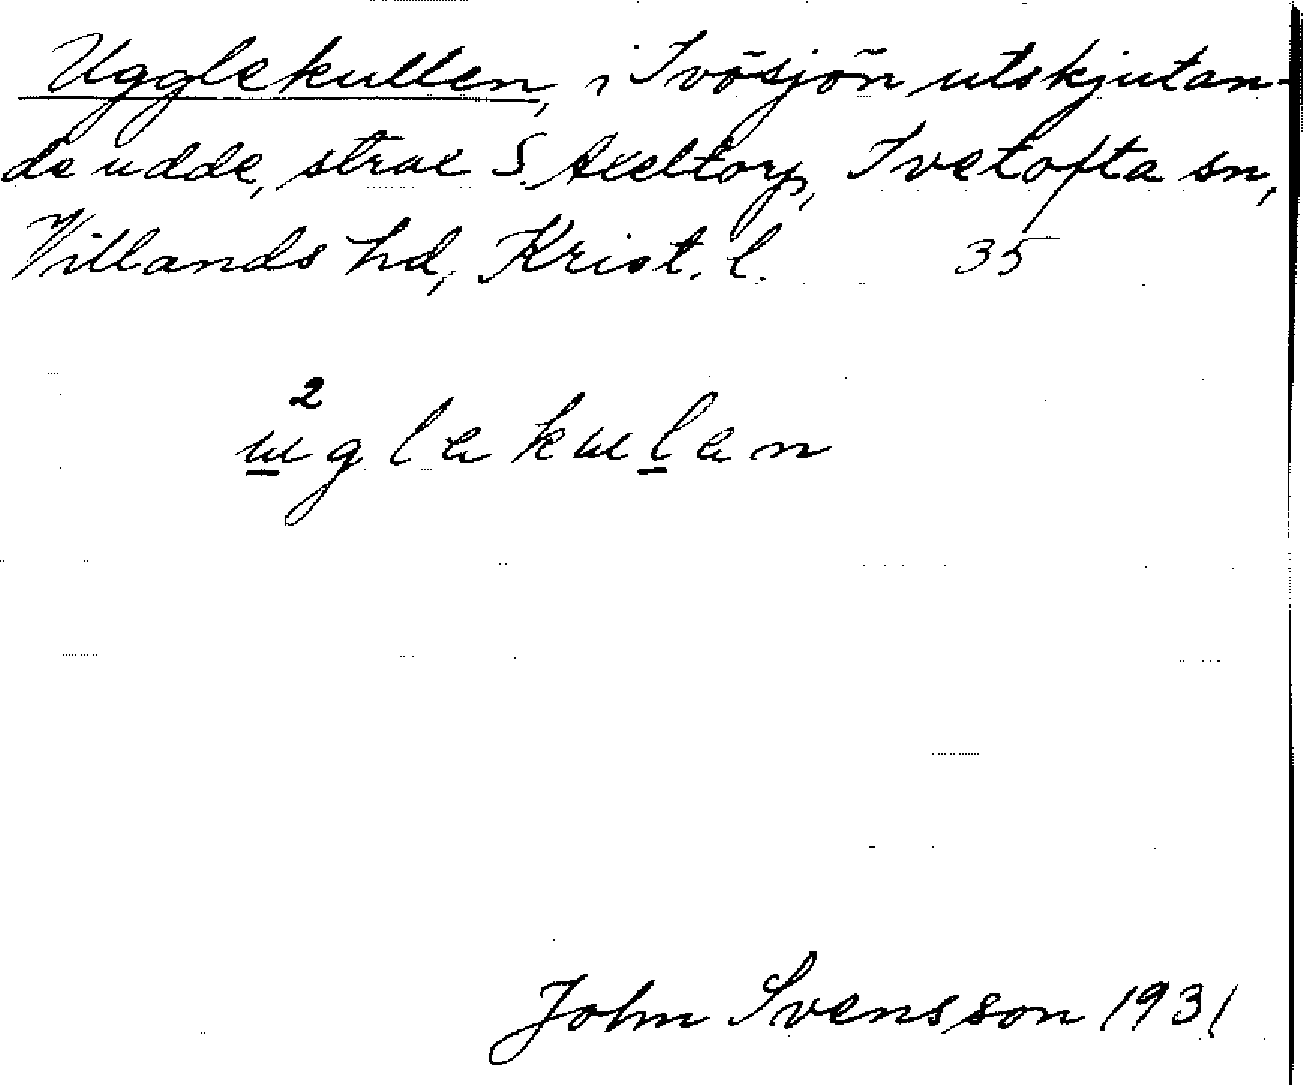 Ugglekullen, i Ivösjön utskjutan-
de udde, strax S. Axeltorp, Ivetofta sn,
Villands hd, Krist. l. 35
2
uglekulen
John Svensson 1931